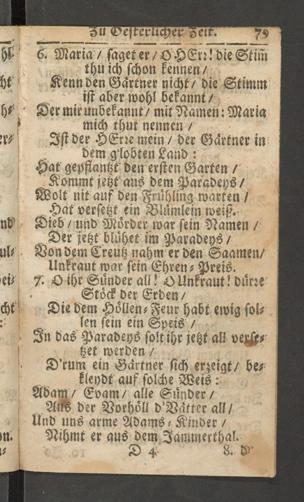 Zu Oesterlicher Zeit. 79
6. Maria / saget er / O HErr! die Stim̄
thu ich schon kennen /
Kenn den Gärtner nicht / die Stimm
ist aber wohl bekannt /
Der mir unbekannt / mit Namen: Maria
mich thut nennen /
Ist der HErre mein / der Gärtner in
dem g'lobten Land :
Hat gepflantzt den ersten Garten /
Kommt jetzt aus dem Paradeys /
Wolt nit auf den Frühling warten /
Hat versetzt ein Blümlein weiß.
Dieb / und Mörder war sein Namen /
Der jetzt blühet im Paradeys /
Von dem Creutz nahm er den Saamen/
Unkraut war sein Ehren-Preis.
7. O ihr Sünder all! O Unkraut! dürre
Stöck der Erden /
Die dem Höllen-Feur habt ewig sol-
len sein ein Speis /
In das Paradeys solt ihr jetzt all verse-
tzet werden /
D'rum ein Gärtner sich erzeigt / be-
kleydt auf solche Weis :
Adam / Evam / alle Sünder /
Aus der Vorhöll d'Vätter all /
Und uns arme Adams-Kinder /
Nihmt er aus dem Jammerthal.
D 4 8. D'